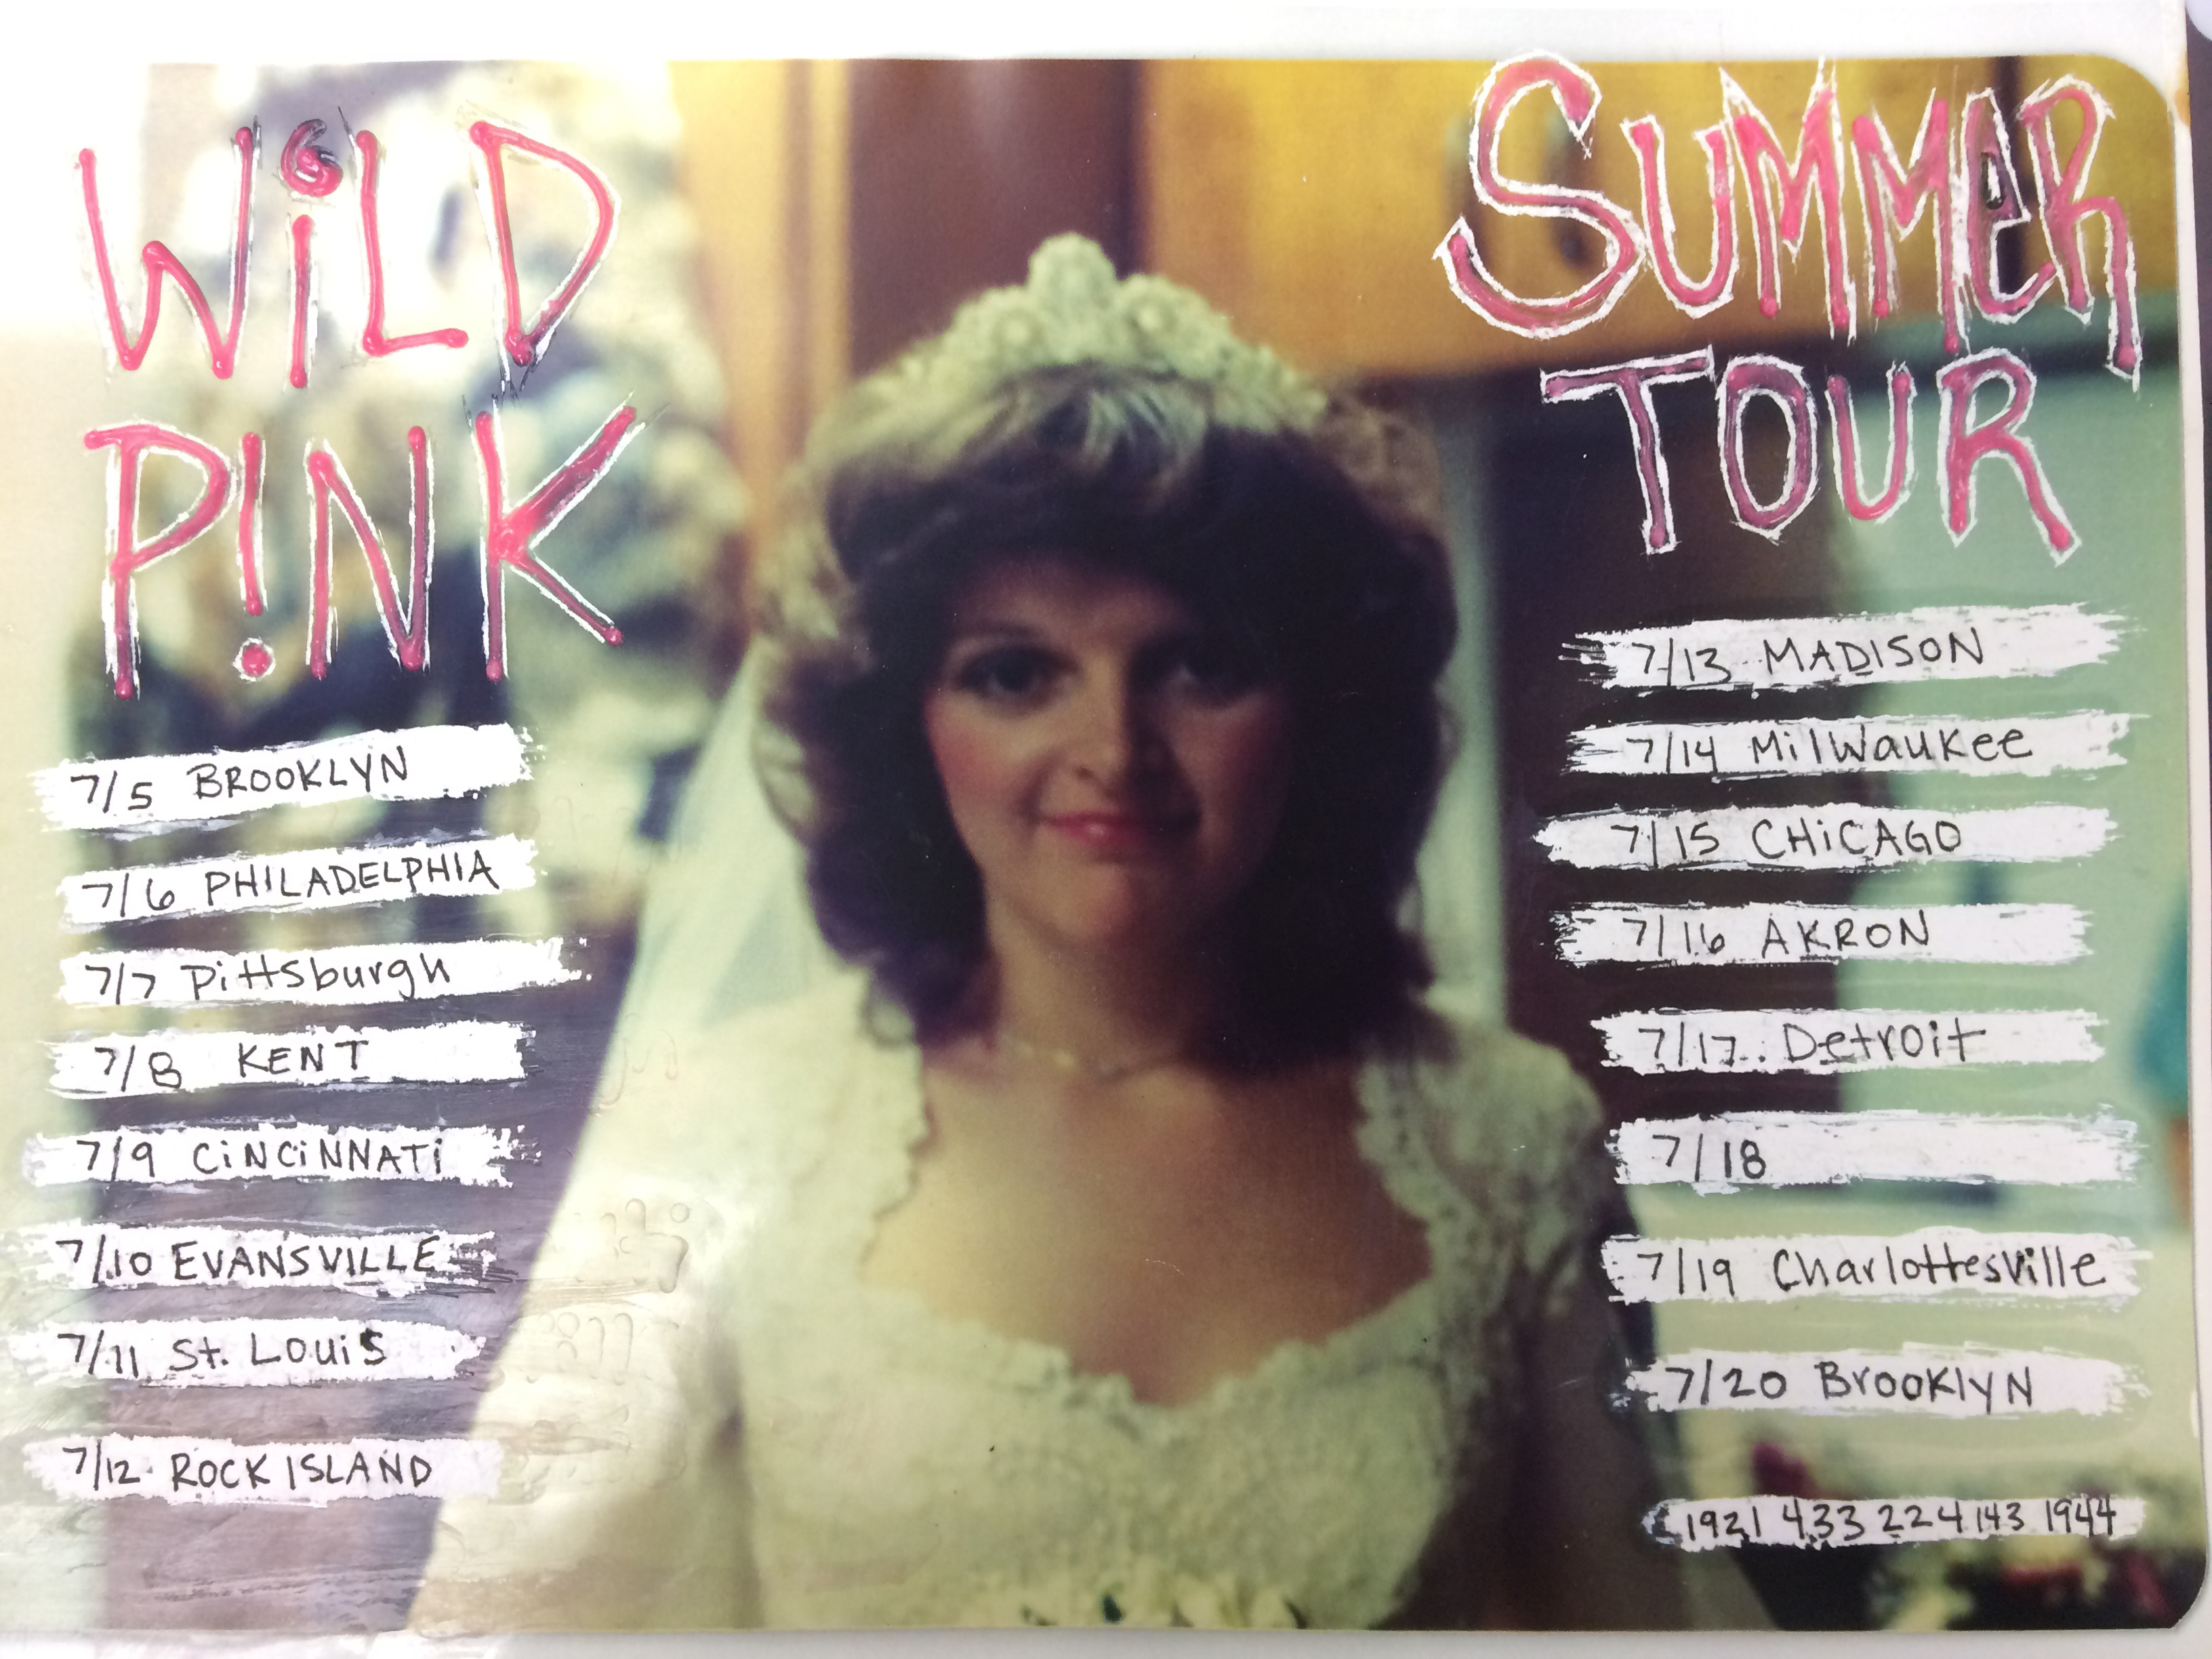 WiLD
P!NK
7/5 BROOKLYN
7/6 PHILADELPHIA
7/7 Pittsburgh
7/8 KENT
7/9 CiNCiNNATi
7/10 EVANSVILLE
7/11 St. Louis
7/12 ROCK ISLAND
SUMMeR
TOUR
7/13 MADISON
7/14 MilWauKee
7/15 CHiCAGO
7/16 AKRON
7/17 Detroit
7/18
7/19 Charlottesville
7/20 BrooKlyN
1921 433 224 143 1944